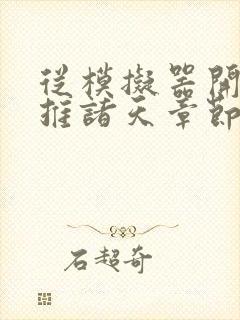 從模擬器開
推諸天章節
石超奇